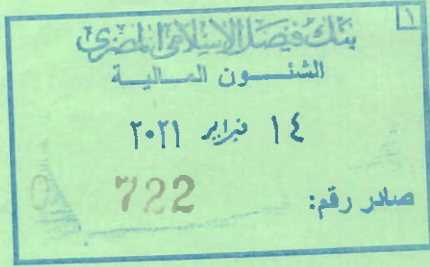 ١
بنك فيصل الإسلامى المصرى
الشئـــون المـــالية
١٤ فبراير ٢٠٢١
صادر رقم: 722